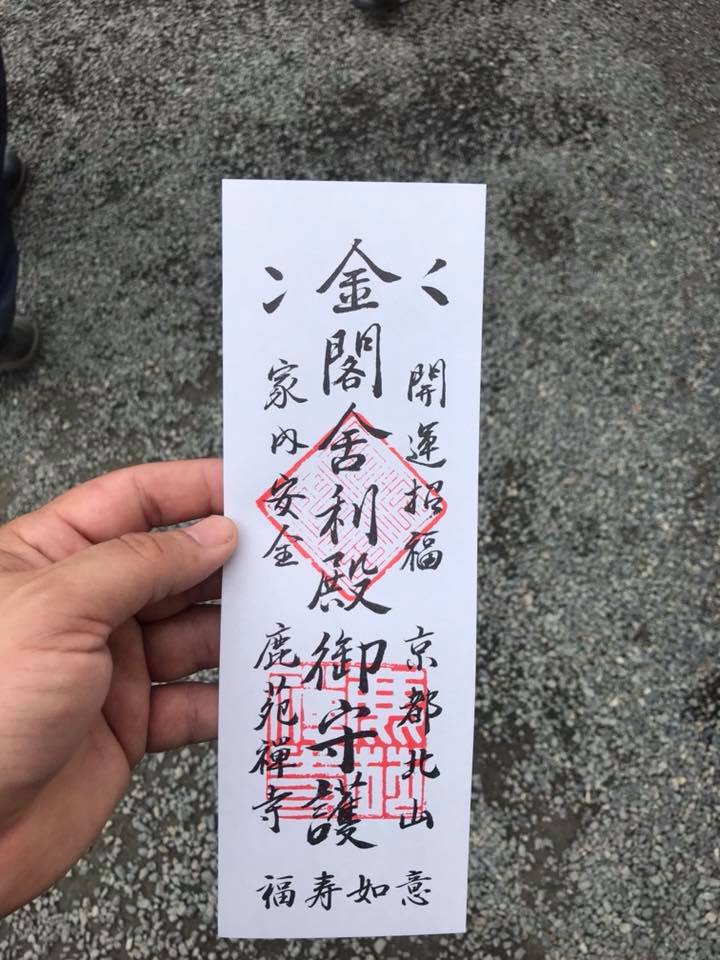 開運招福
京都北山
金閣舎利殿御守護
家内安全
鹿苑禪寺
福寿如意